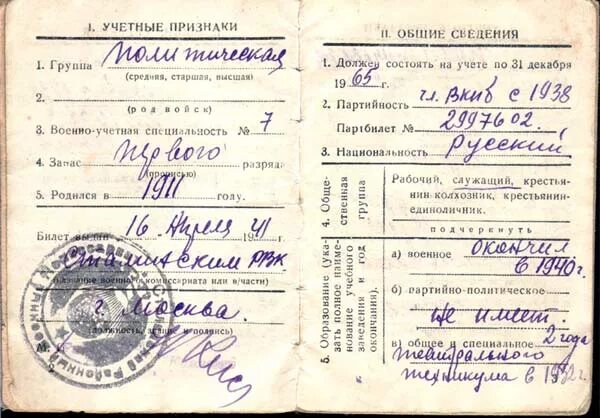 I. УЧЕТНЫЕ ПРИЗНАКИ
1. Группа политическая
(средняя, старшая, высшая)
2.
(род войск)
3. Военно-учетная специальность № 7
4. Запас первого разряда
(прописью)
5. Родился в 1911 году.
Билет выдан 16 апреля 1941
Сталинским РВК
(название военного комиссариата или в/части)
г. Москва.
(должность, звание и подпись)
II. ОБЩИЕ СВЕДЕНИЯ
1. Должен состоять на учете по 31 декабря
1965 г.
2. Партийность чл. ВКПб с 1938
Партбилет № 2997602.
3. Национальность Русский
4. Общественная группа
Рабочий, служащий, крестьянин-колхозник, крестьянин-единоличник.
подчеркнуть
5. Образование (указать полное наименование учебного заведения и год окончания).
а) военное окончил
в 1940 г.
б) партийно-политическое
не имеет.
в) общее и специальное 2 года
театрального
техникума в 1932 г.